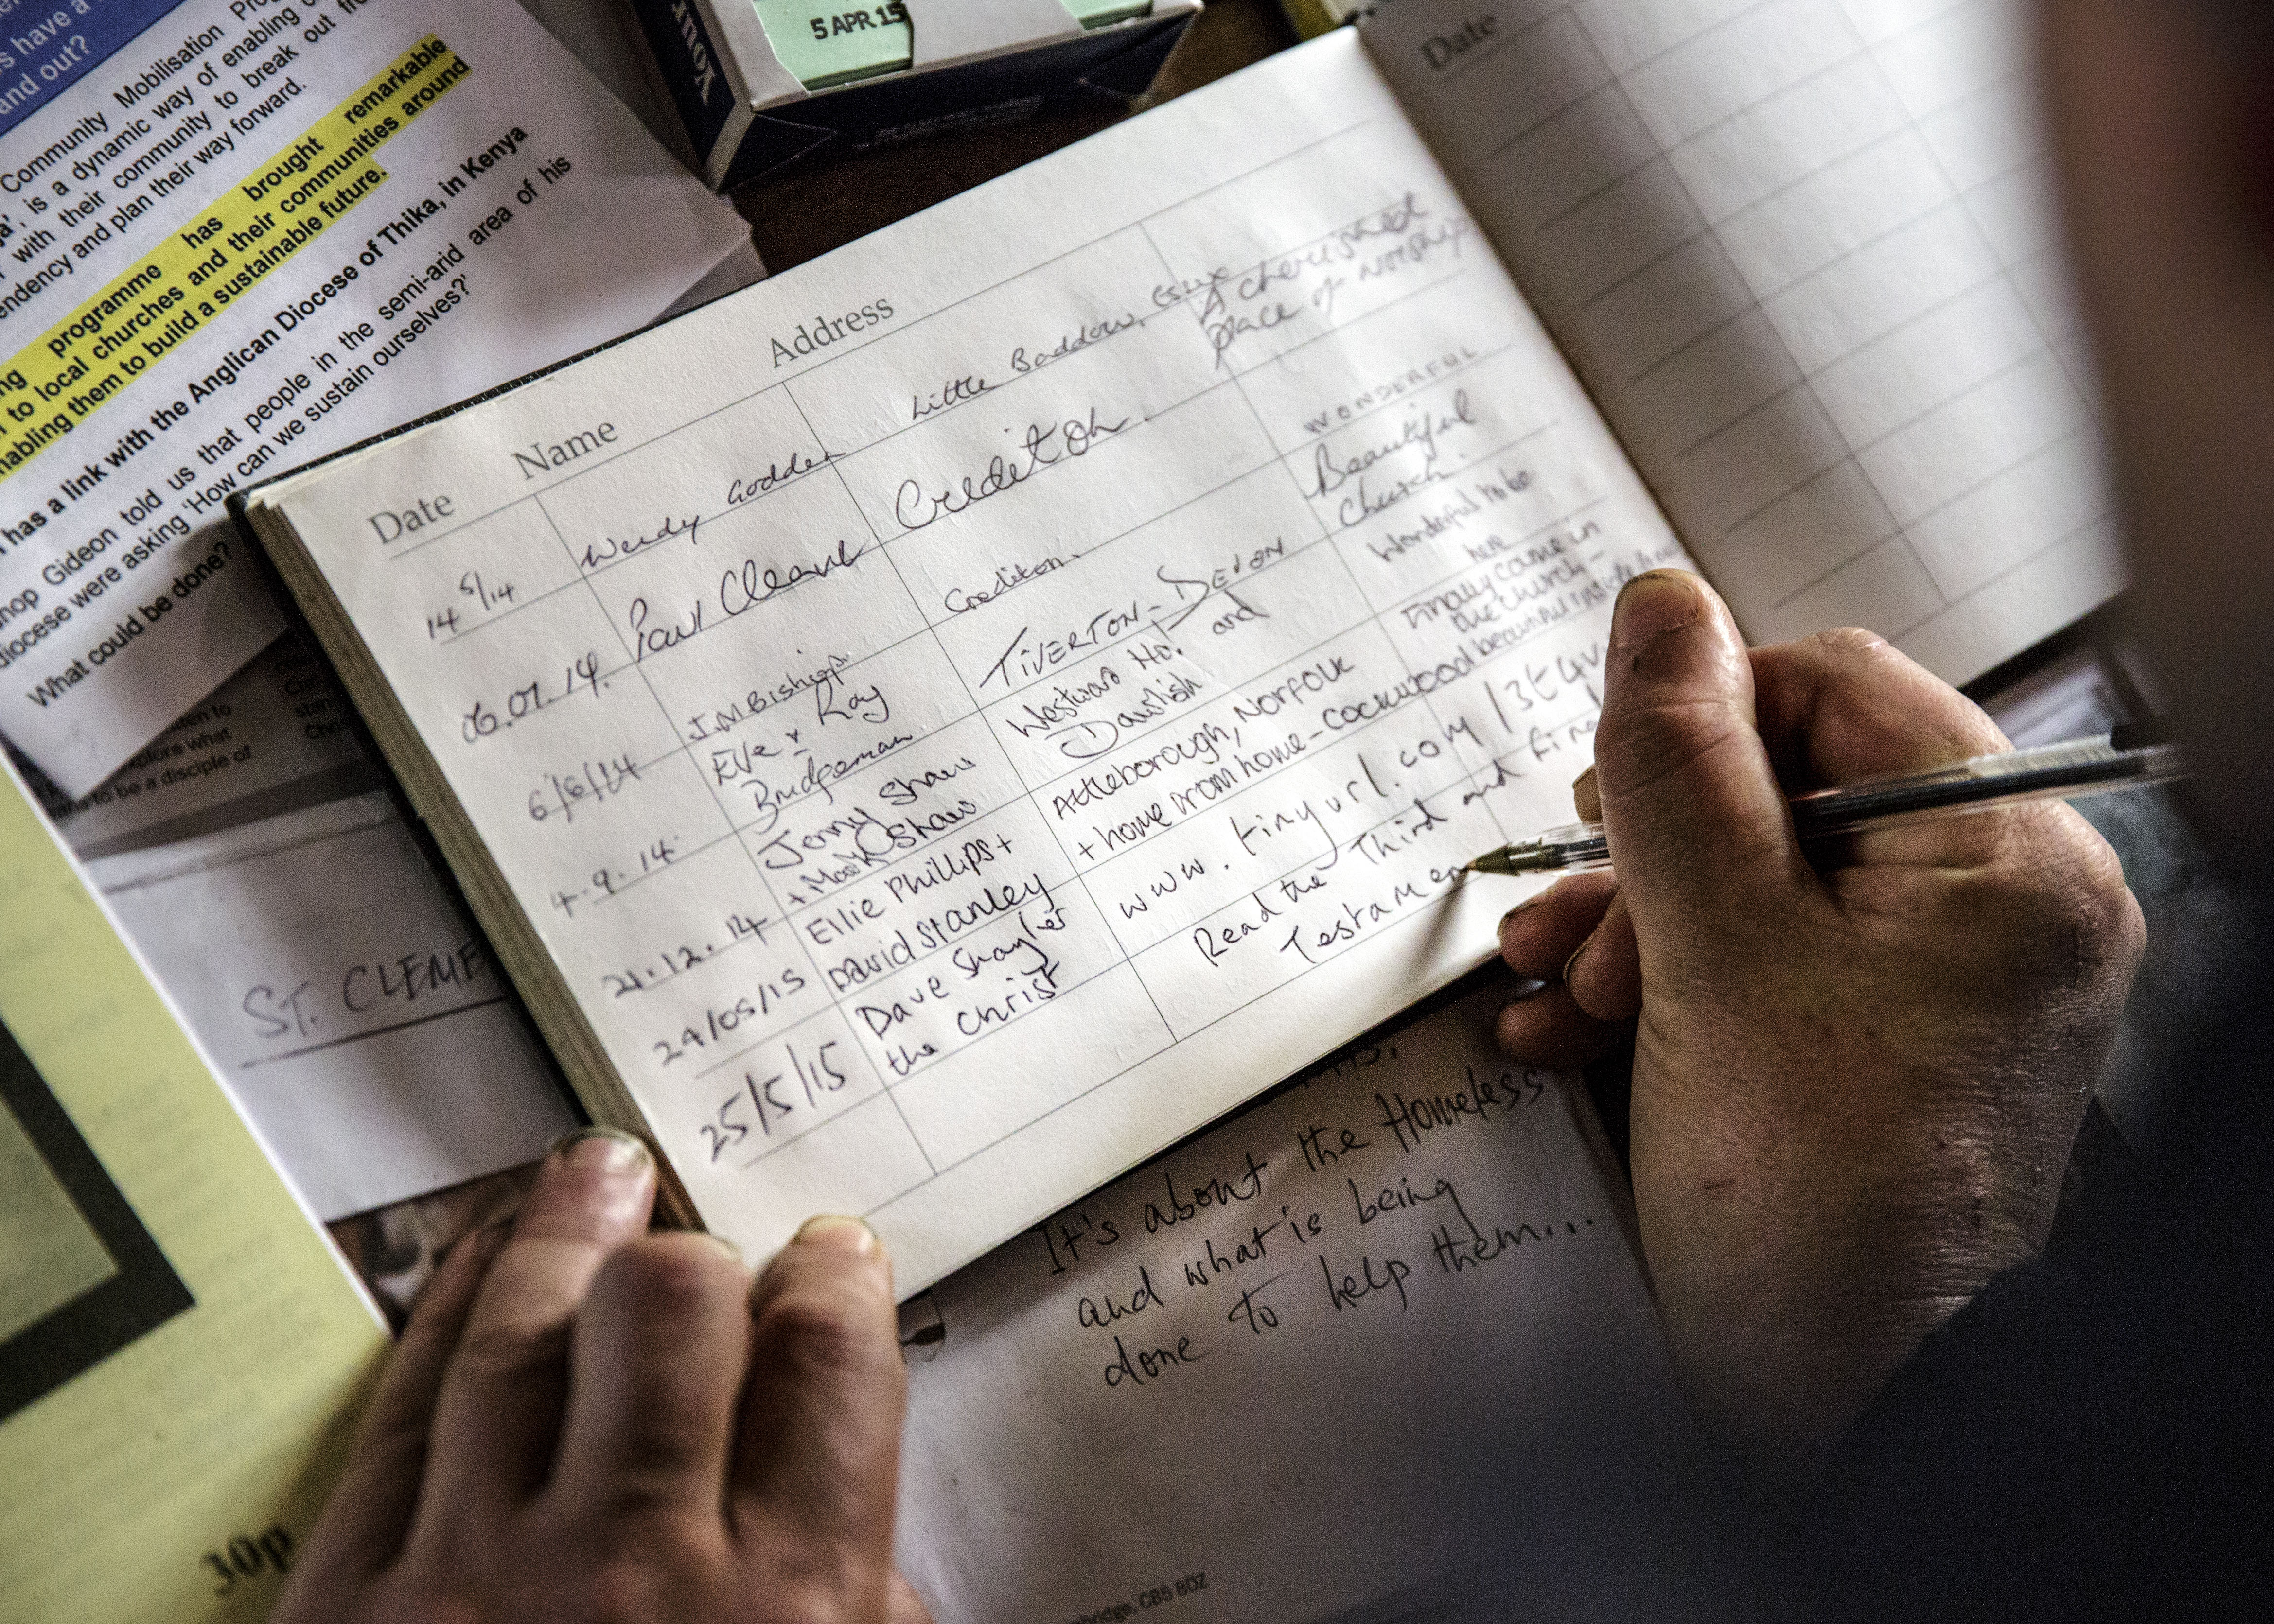 s have a
and out?
Community Mobilisation
is a dynamic way of enabling
with their community to break out
endency and plan their way forward.
programme has brought remarkable
to local churches and their communities around
nabling them to build a sustainable future.
has a link with the Anglican Diocese of Thika, in Kenya
hop Gideon told us that people in the semi-arid area of his
diocese were asking 'How can we sustain ourselves?'
What could be done?
Your
5 APR.15
Date Name Address
14 5/14 Wendy Godden Little Baddow, Essex A cherished
place of worship
06.07.14. Paul Cleave Crediton. WONDERFUL
6/8/14 J.M Bishop Crediton. Beautiful
Church.
4.9.14 Eve + Ray
Bridgeman TIVERTON - DEVON Wonderful to be
here
21.12.14 Jenny Shaw
+ Mark Shaw Westward Ho! and
Dawlish Finally came in
the church -
beautiful inside
24/05/15 Ellie Phillips +
David Stanley Attleborough, Norfolk
+ home from home - Cockwood
25/5/15 Dave Shayler
the Christ www.tinyurl.com/3t4v
Read the Third and Final
Testamen
Date
ten to
explore what
to be a disciple of
ST. CLEME
It's about the Homeless
and what is being
done to help them...
30p
bridge, CB5 8DZ